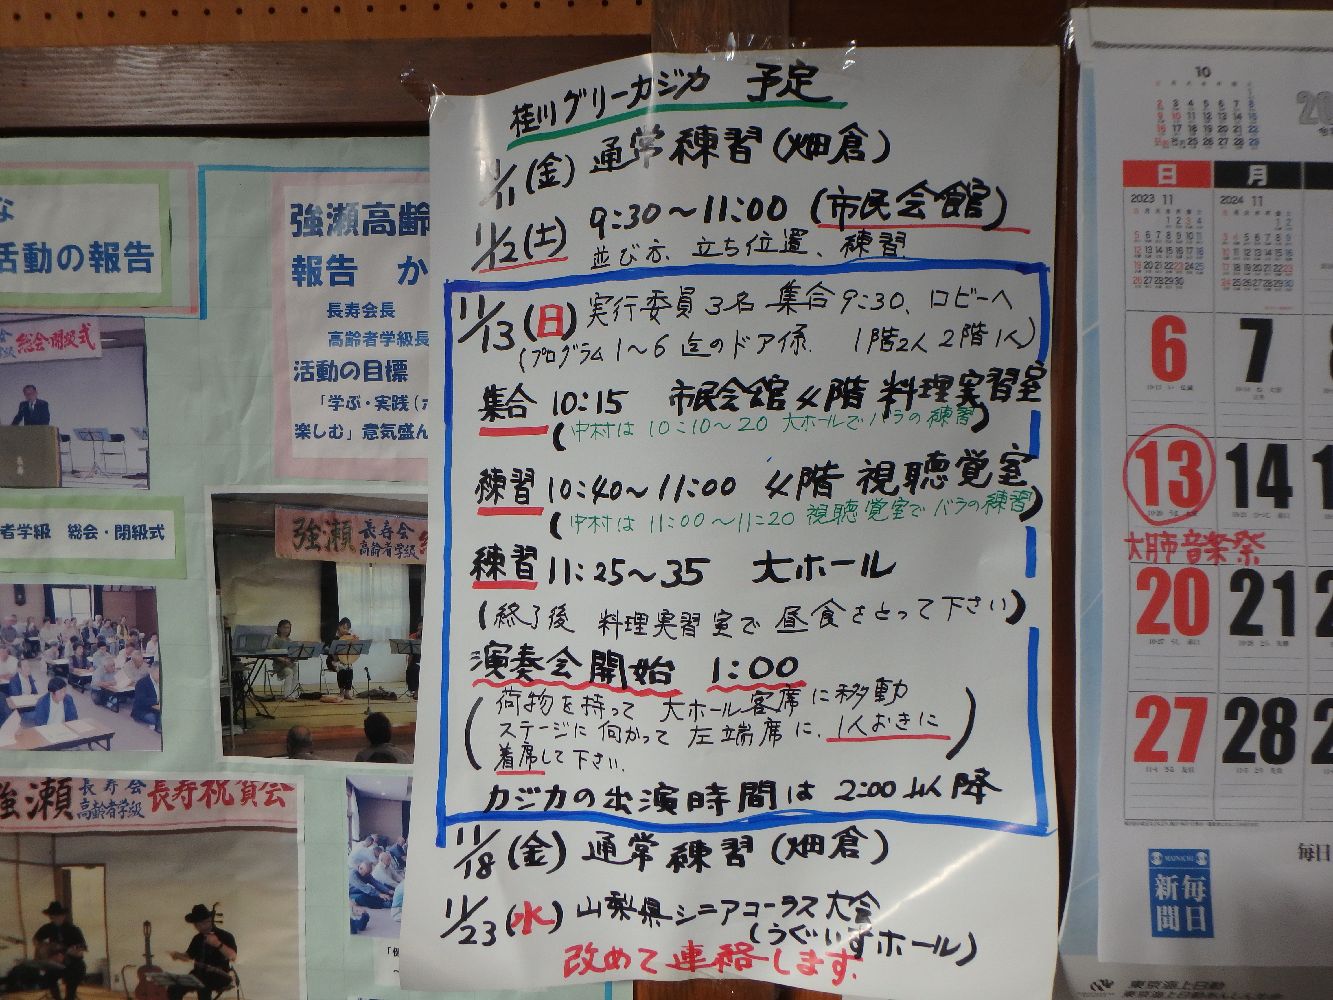 桂川グリーカジカ 予定
11/11(金) 通常練習(畑倉)
11/12(土) 9:30〜11:00 (市民会館)
並び方、立ち位置、練習
11/13(日) 実行委員3名 集合9:30、ロビーへ
(プログラム1〜6迄のドア係、1階2人 2階1人)
集合 10:15 市民会館4階 料理実習室
(中村は 10:10〜20 大ホールでバラの練習)
練習 10:40〜11:00 4階 視聴覚室
(中村は 11:00〜11:20 視聴覚室でバラの練習)
練習 11:25〜35 大ホール
(終了後 料理実習室で昼食をとって下さい)
演奏会開始 1:00
(荷物を持って 大ホール客席に移動
ステージに向かって左端席に、1人おきに
着席して下さい。)
カジカの出演時間は 2:00以降
11/18(金) 通常練習(畑倉)
11/23(水) 山梨県シニアコーラス大会
(うぐいすホール)
改めて連絡します。
活動の報告
総会・閉級式
者学級 総会・閉級式
強瀬高齢
報告 か
長寿会長
高齢者学級長
活動の目標
「学ぶ・実践
楽しむ」意気盛ん
強瀬 長寿会
高齢者学級
強瀬 長寿会
高齢者学級 長寿祝賀会
10
日 月
2023 11
2024 11
6 7
13 14
大月市音楽祭
20 21
27 28
MAINICHI
毎日
新聞
毎日
東京海上日動